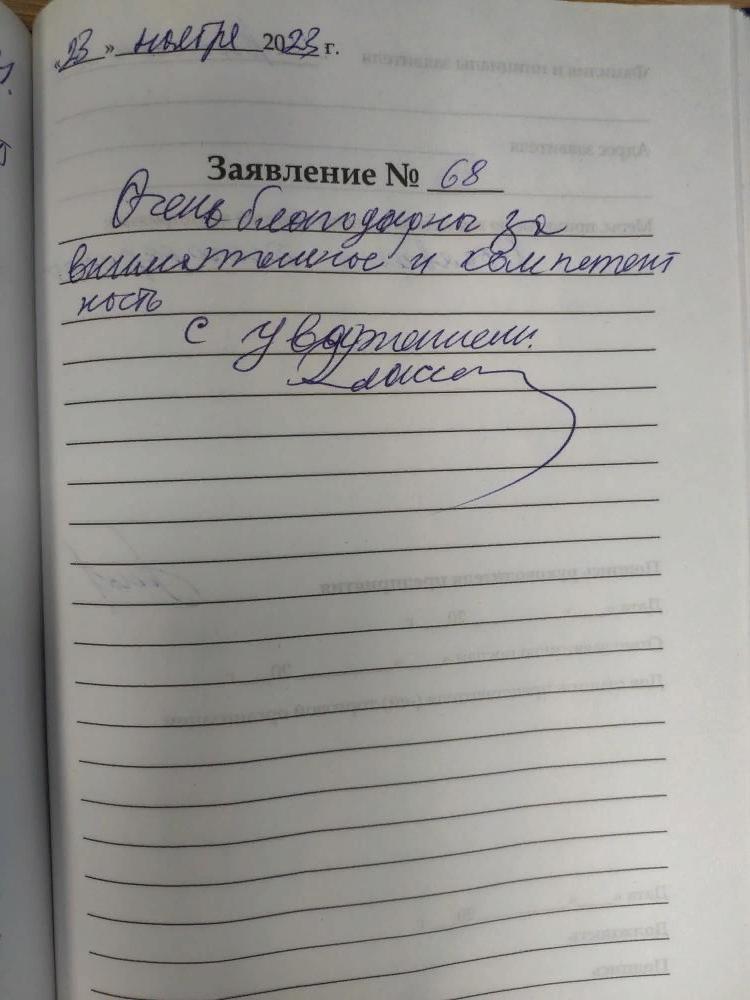 «23» ноября 2023 г.
Заявление № 68
Очень благодарны за
внимательное и компетент
ность
с уважением.